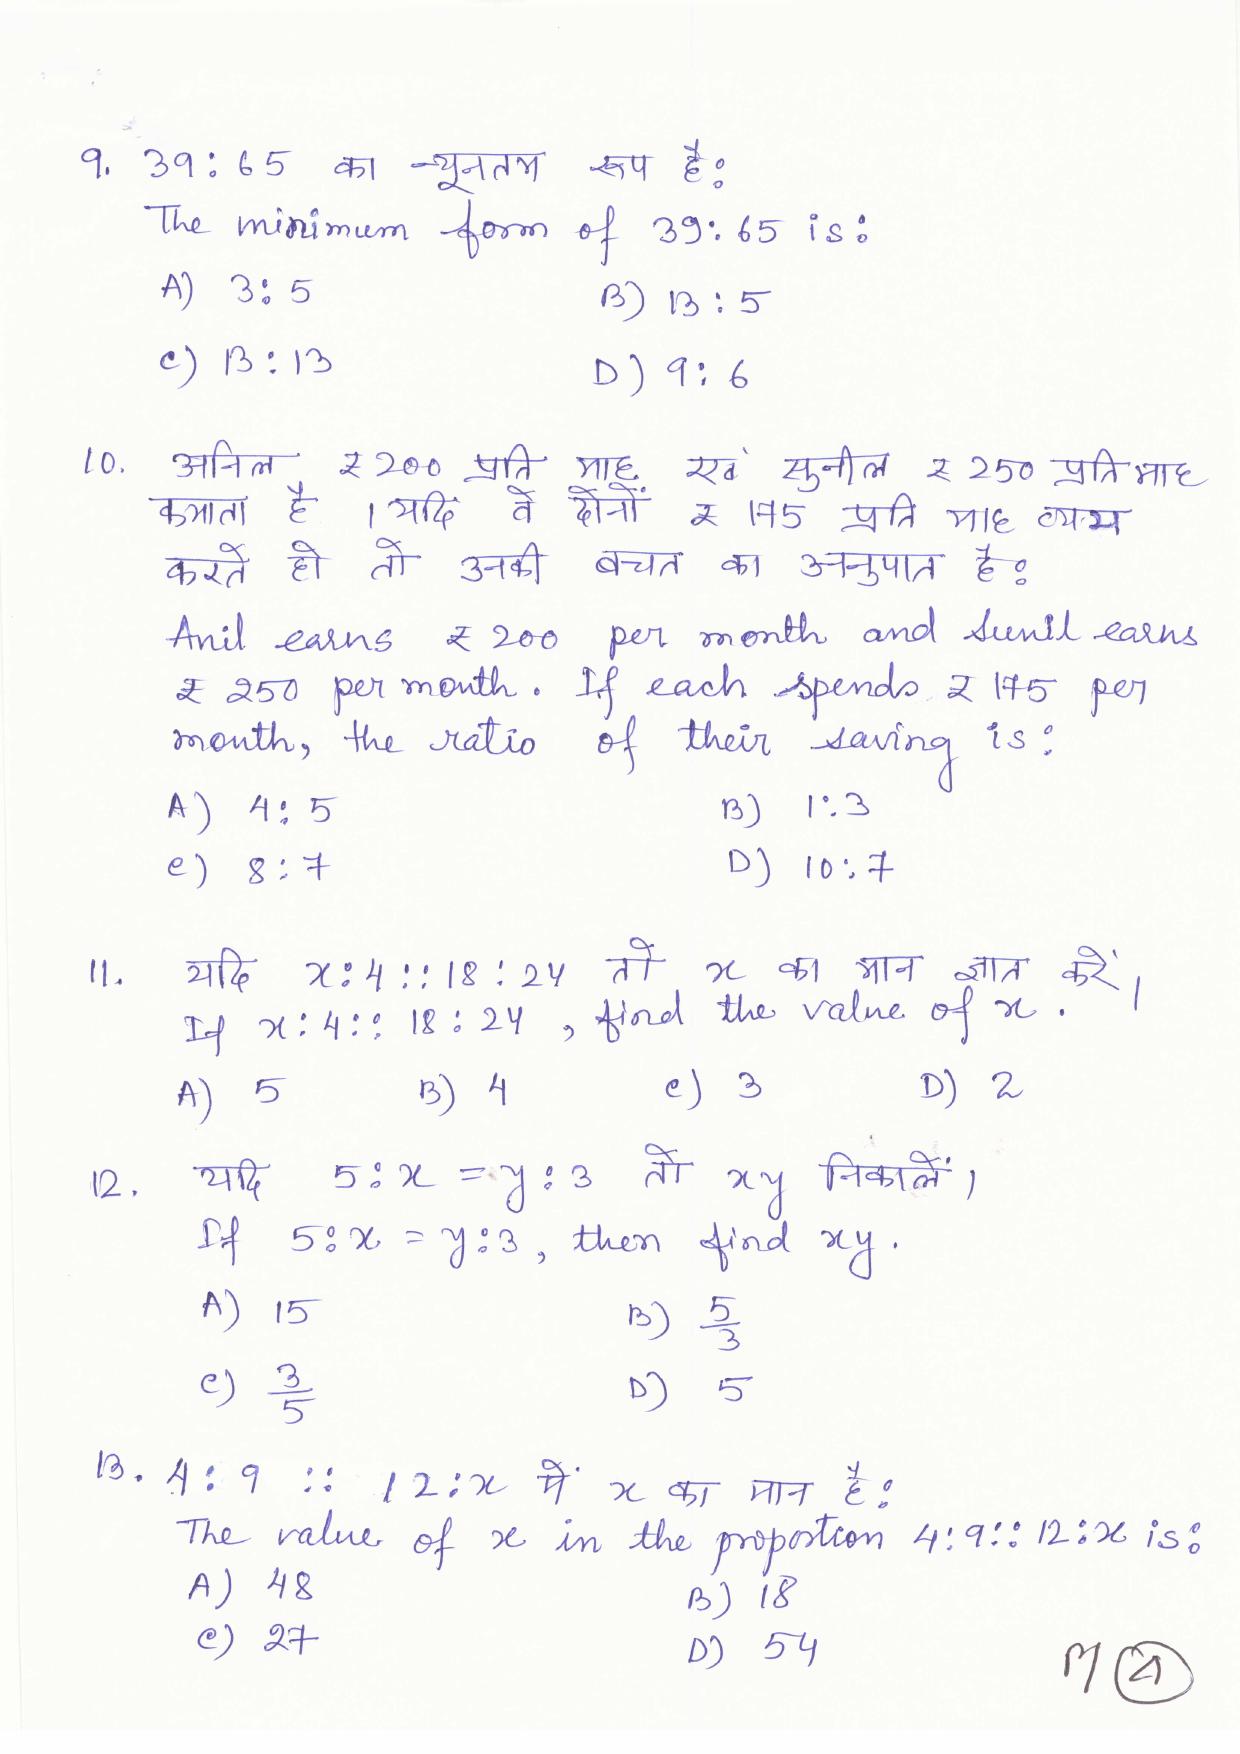 9. 39:65 का न्यूनतम रूप है:
The minimum form of 39:65 is:
A) 3:5 B) 13:5
C) 13:13 D) 9:6
10. अनिल ₹200 प्रति माह एवं सुनील ₹250 प्रति माह
कमाता है। यदि वे दोनों ₹175 प्रति माह व्यय
करते हो तो उनकी बचत का अनुपात है:
Anil earns ₹200 per month and Sunil earns
₹250 per month. If each spends ₹175 per
month, the ratio of their saving is:
A) 4:5 B) 1:3
C) 8:7 D) 10:7
11. यदि x:4::18:24 तो x का मान ज्ञात करें।
If x:4::18:24, find the value of x.
A) 5 B) 4 C) 3 D) 2
12. यदि 5:x = y:3 तो xy निकालें।
If 5:x = y:3, then find xy.
A) 15 B) 5/3
C) 3/5 D) 5
13. 4:9::12:x में x का मान है:
The value of x in the proportion 4:9::12:x is:
A) 48 B) 18
C) 27 D) 54